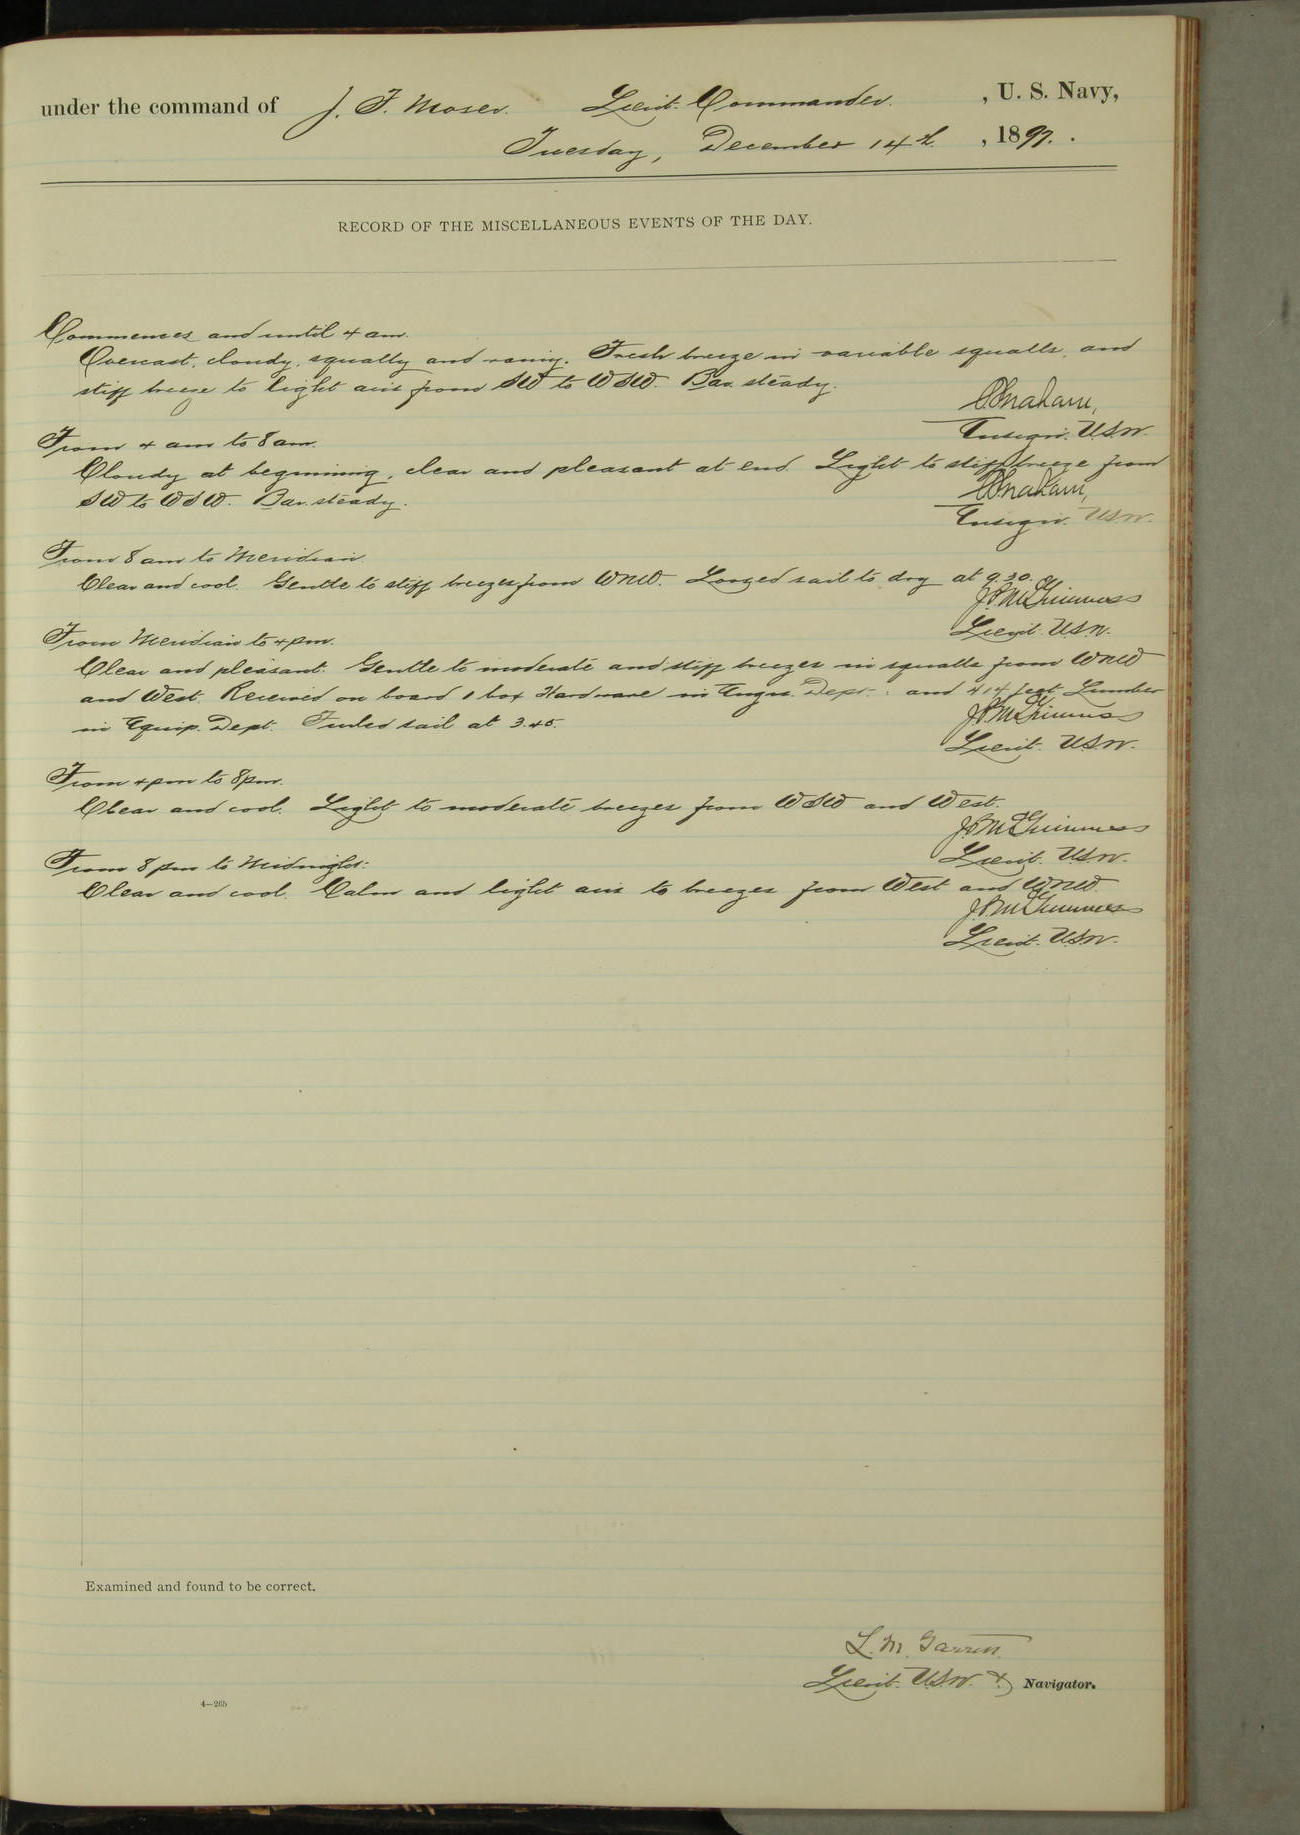 under the command of J. F. Moser. Lieut. Commander. , U. S. Navy,
Tuesday, December 14th. , 1897. .
RECORD OF THE MISCELLANEOUS EVENTS OF THE DAY.
Commences and until 4 am.
Overcast, cloudy, squally and rainy. Fresh breeze in variable squalls, and
stiff breeze to light airs from SW to WSW. Bar. steady.
Ensign. U.S.N.
From 4 am to 8 am.
Cloudy at beginning, clear and pleasant at end. Light to stiff breeze from
SW to WSW. Bar. steady.
Ensign. U.S.N.
From 8 am to Meridian.
Clear and cool. Gentle to stiff breezes from WNW. Loosed sail to dry at 9.30.
J.P. McGuinness
Lieut. U.S.N.
From Meridian to 4 pm.
Clear and pleasant. Gentle to moderate and stiff breezes in squalls from WNW
and West. Received on board 1 box Hardware in Engrs. Dept. : and 414 feet Lumber
in Equip. Dept. Furled sail at 3.45.
J.P. McGuinness
Lieut. U.S.N.
From 4 pm to 8 pm.
Clear and cool. Light to moderate breezes from WSW and West.
J.P. McGuinness
Lieut. U.S.N.
From 8 pm to Midnight:
Clear and cool. Calm and light airs to breezes from West and WNW.
J.P. McGuinness
Lieut. U.S.N.
Examined and found to be correct.
L. M. Garrett.
Lieut. U.S.N. & Navigator.
4—26b